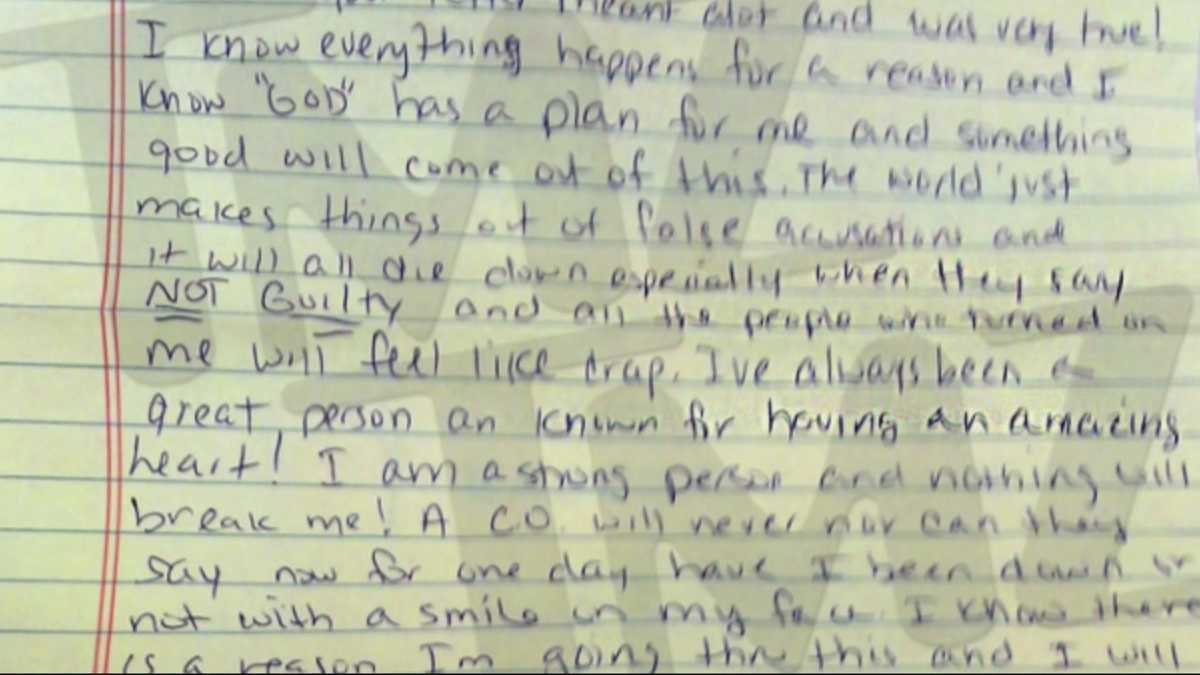 meant alot and was very true!
I know everything happens for a reason and I
know "GOD" has a plan for me and something
good will come out of this. The world just
makes things out of false accusations and
it will all die down especially when they say
NOT Guilty and all the people who turned on
me will feel like crap. Ive always been a
great person an known for having an amazing
heart! I am a strong person and nothing will
break me! A CO. will never nor can they
say now for one day have I been down or
not with a smile on my face. I know there
is a reason Im going thru this and I will
TMZ
TMZ